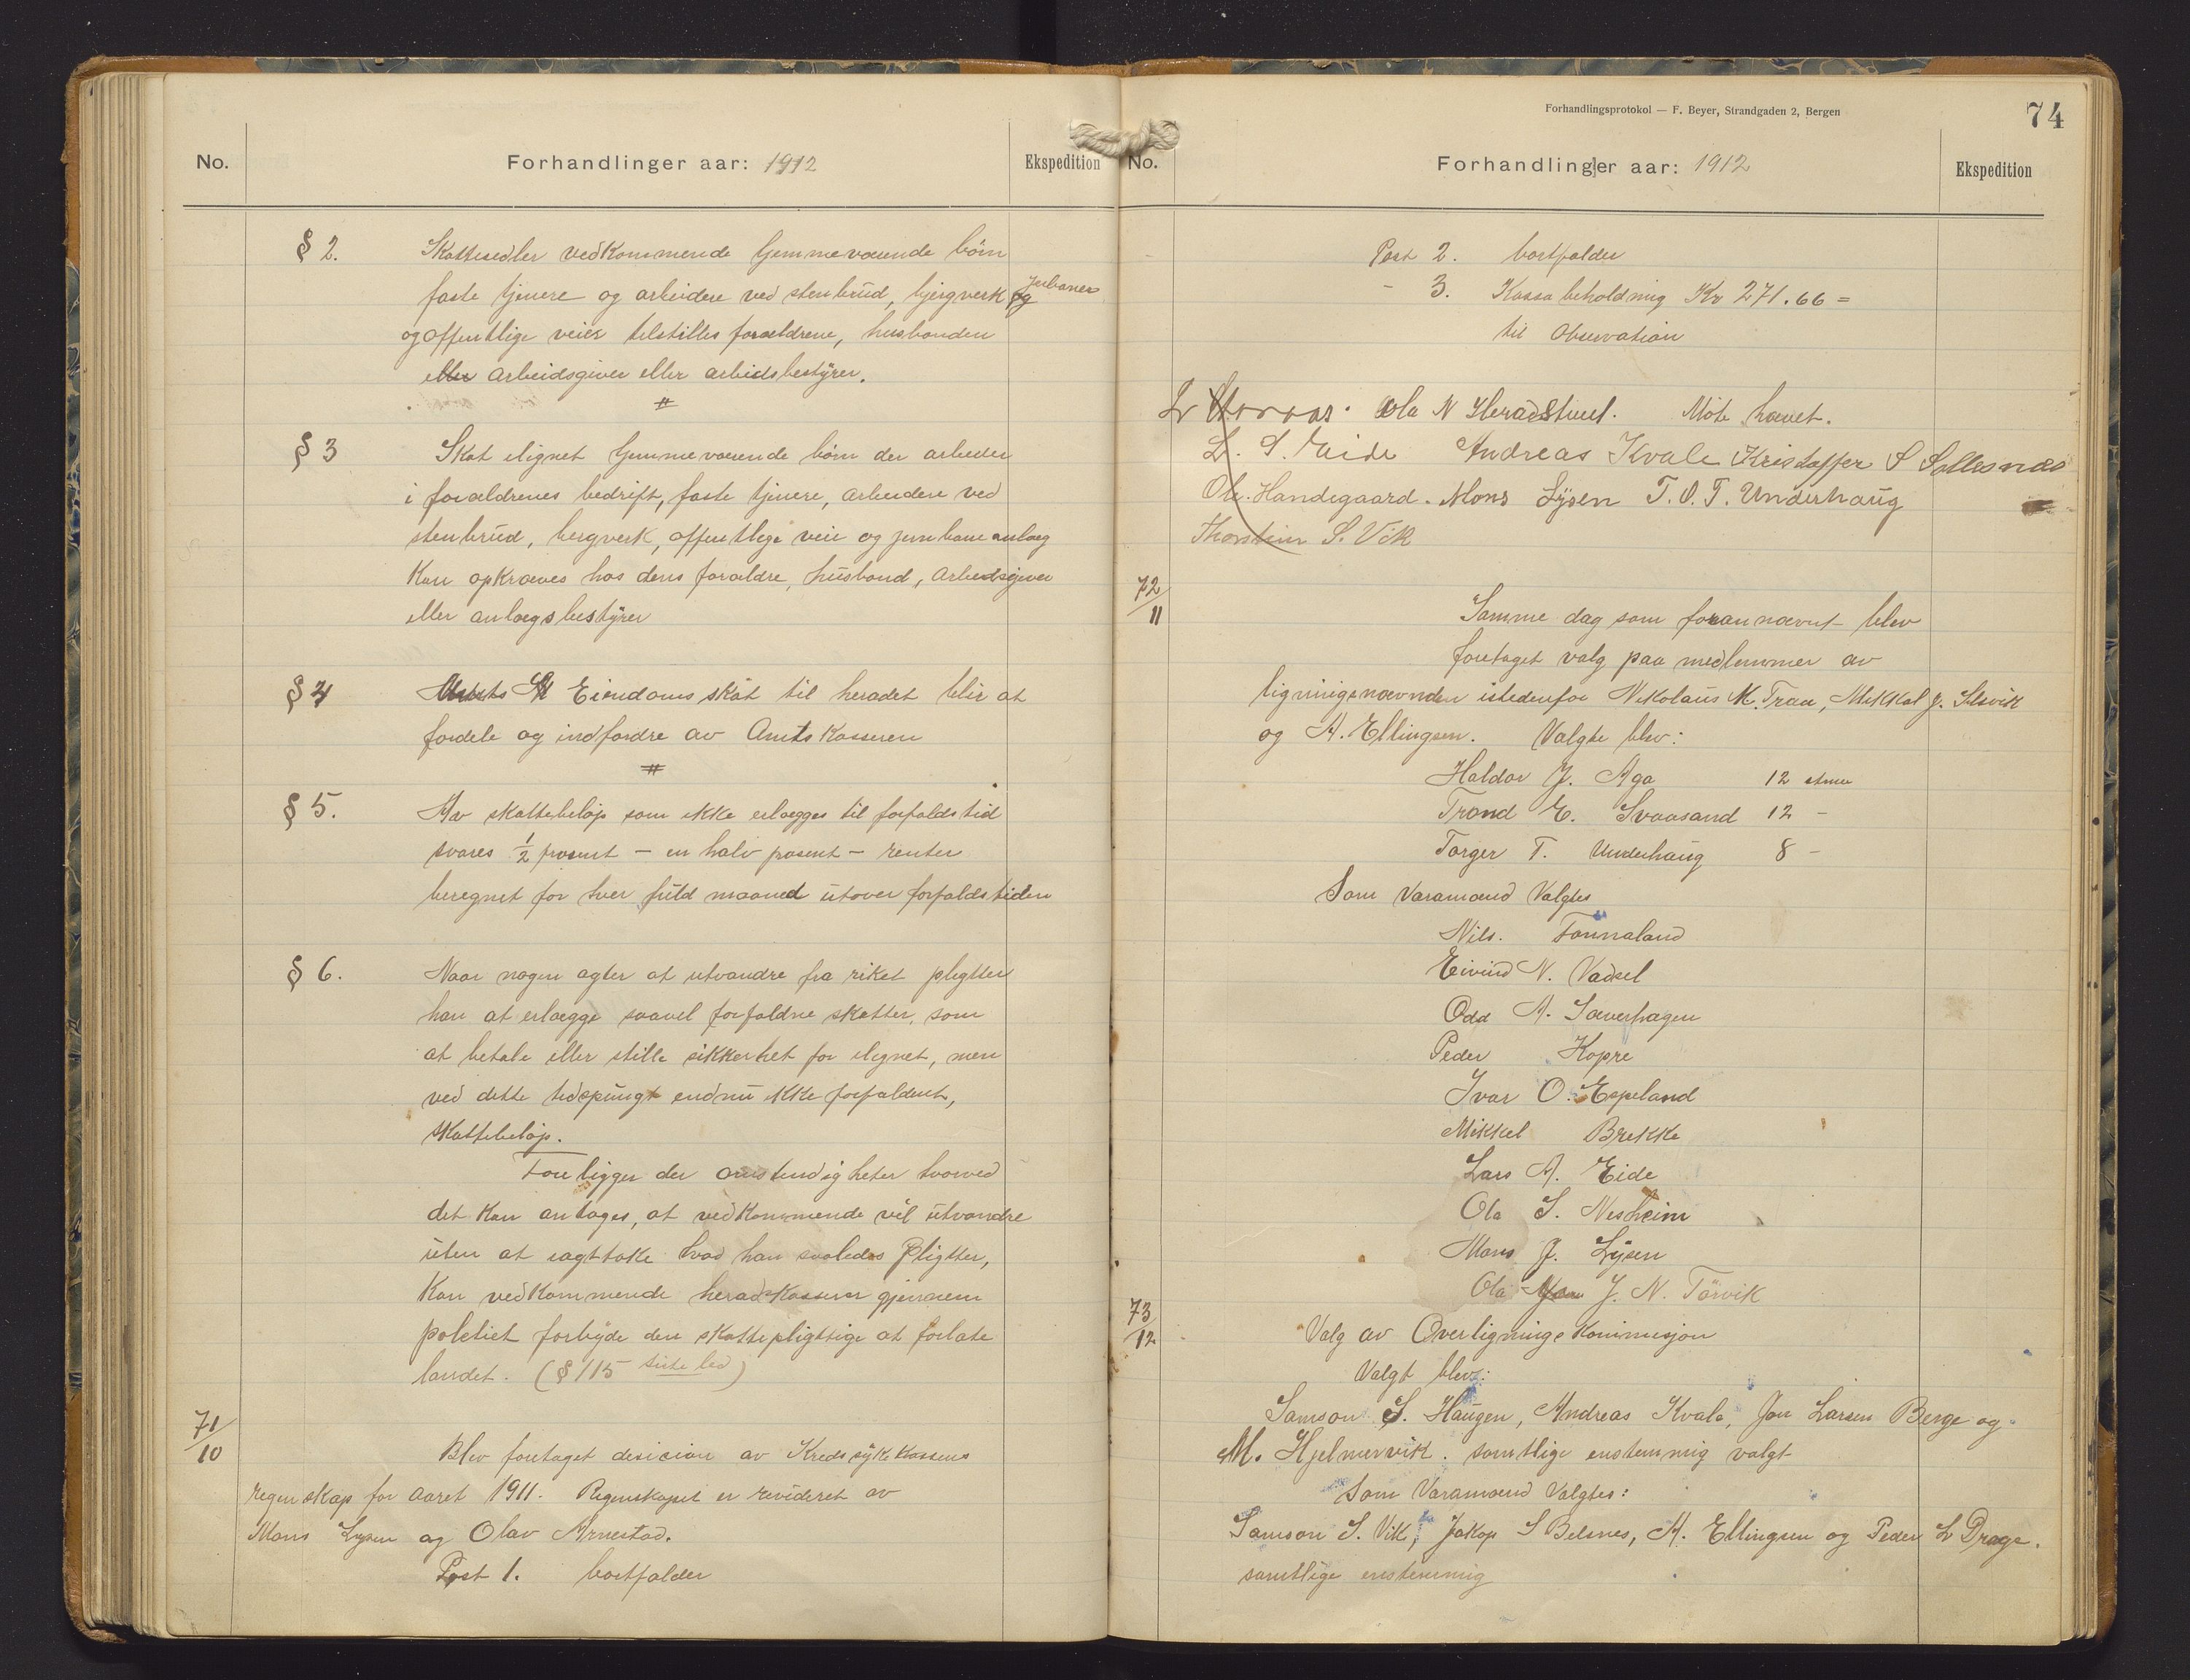 No.
Forhandlinger aar: 1912
Ekspedition
§ 2. Skattesedler vedkommende hjemmeværende børn
faste tjenere og arbeidere ved stenbrud, bjergverk jernbaner
og offentlige veier telstilles forældrene, husbonden
eller arbeidsgiver eller arbeidsbestyrer.
§ 3 Skat ilignet hjemmeværende børn der arbeider
i forældrenes bedrift, faste tjenere, arbeidere ved
stenbrud, bergverk, offentlige veie og jernbaneanlæg
kan opkræves hos dens forældre, husbond, arbeidsgiver
eller anlægsbestyrer
§ 4 Eiendomsskat til heradet blir at
fordele og indfordre av Amtskasseren
§ 5. Av skattebeløp som ikke erlægges til forfaldstid
svares 1/2 prosent - en halv prosent - renter
beregnet for hver fuld maaned utover forfaldstiden
§ 6. Naar nogen agter at utvandre fra riket plegtter
han at erlægge saavel forfaldne skatter, som
at betale eller stille sikkerhet for ilignet, men
ved dette tedspungt endnu ikke forfaldent,
skattebeløp.
Foreligger der omstendigheter hvorved
det kan antages, at vedkommende vil utvandre
uten at iagttake hvad han saaledes pligtter,
kan vedkommende heradskasserer gjennem
poletiet forbyde den skattepligttige at forlate
landet. (§ 115 siste led)
71/10 Blev foretaget desision av Kredssykekassens
regenskap for aaret 1911. Regenskapet er revideret av
Mons Lysen og Olav Arnestad.
Post 1. bortfalder
Forhandlingsprotokol — F. Beyer, Strandgaden 2, Bergen
74
No.
Forhandlinger aar: 1912
Ekspedition
Post 2. bortfalder
- 3. Kassabeholdning Kr 271.66 =
til Observation
Ola N Heradstveit. Møte hævet.
L. S. Eide Andreas Kvale Kristaffer S Sollesnes
Ole Handegaard. Mons Lysen T. O. T. Underhaug
Thorstein S. Vik
72/11 Samme dag som forannævnt blev
foretaget valg paa medlemmer av
ligningsnævnden istedenfor Nikolaus M. Traa, Mikkal J. Selsvik
og A. Ellingsen. Valgte blev:
Haldor J. Aga 12 stme
Trond E. Svaasand 12 -
Torger T. Underhaug 8 -
Som varamænd valgtes
Nils. Fonnaland
Eivind N. Vadsel
Odd A. Sæverhagen
Peder Kopre
Ivar O. Espeland
Mikkel Brekke
Lars A. Eide
Ola S. Nesheim
Mons J. Lysen
Ola J. N. Tørvik
73/12 Valg av Overligningskommisjon
Valgt blev:
Samson S. Haugen, Andreas Kvale, Jon Larsen Berge og
M. Hjelmervik. samtlige enstemmig valgt
Som Varamænd valgtes:
Samson S. Vik, Jakop S Belsnes, A. Ellingsen og Peder L Drage.
samtlige enstemmig